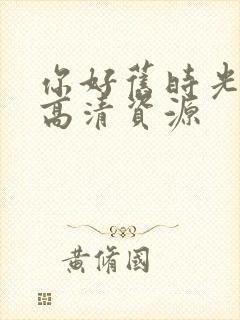 你好舊時光
高清資源
黃脩國